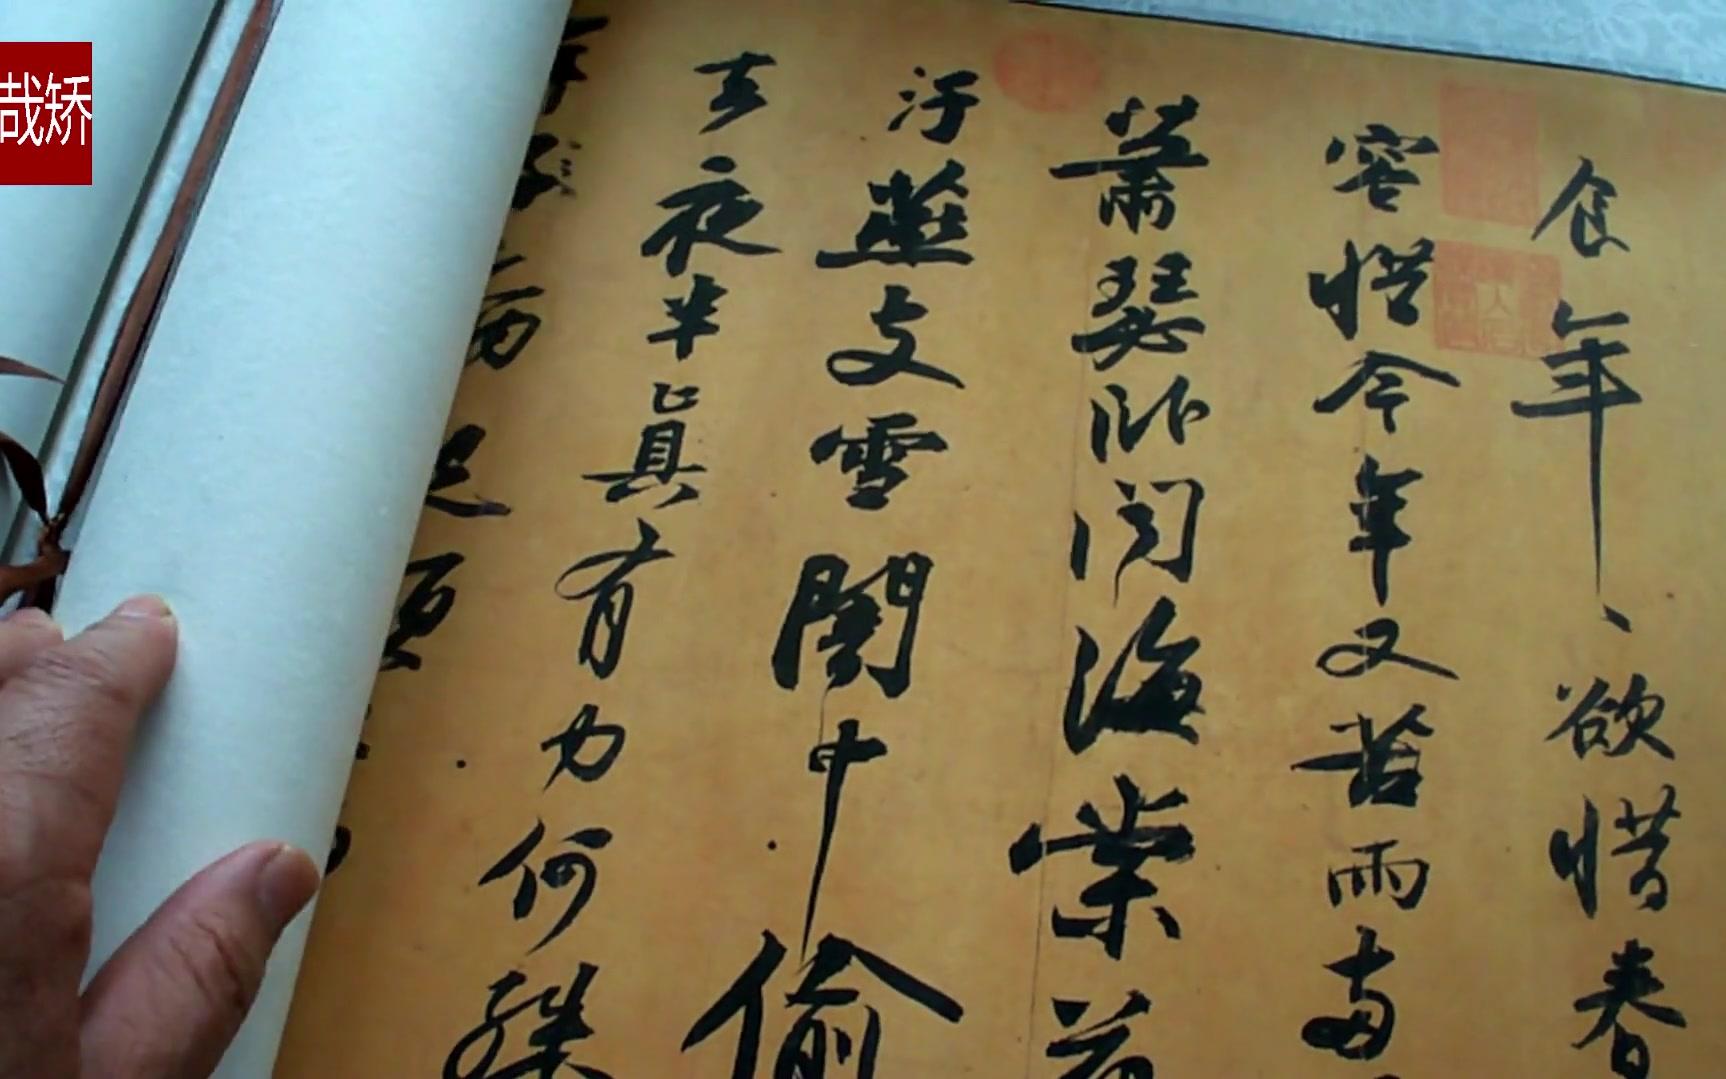 哉矫
食年、欲惜春
容惜今年又苦雨兩
蕭瑟臥聞海棠花
汙燕支雪闇中偷
去夜半真有力何殊
年病起